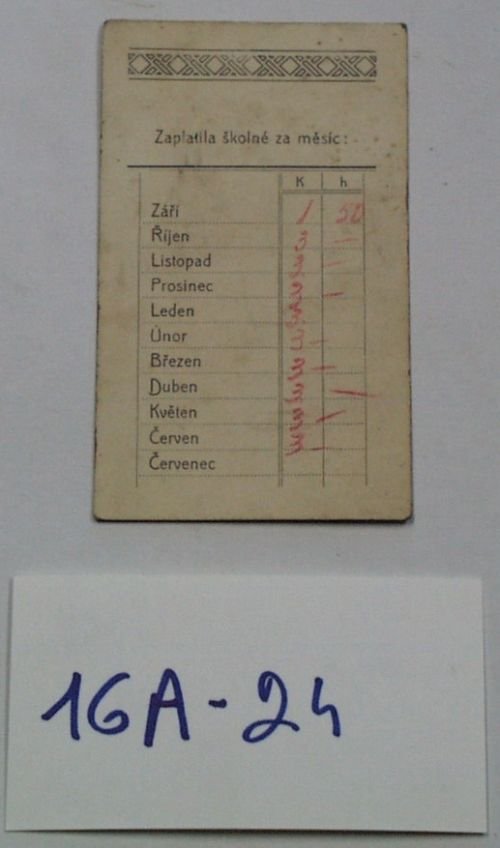 Zaplatila školné za měsíc:
K h
Září 1 50
Říjen 3 –
Listopad
Prosinec
Leden
Únor
Březen
Duben
Květen
Červen
Červenec
16A-24